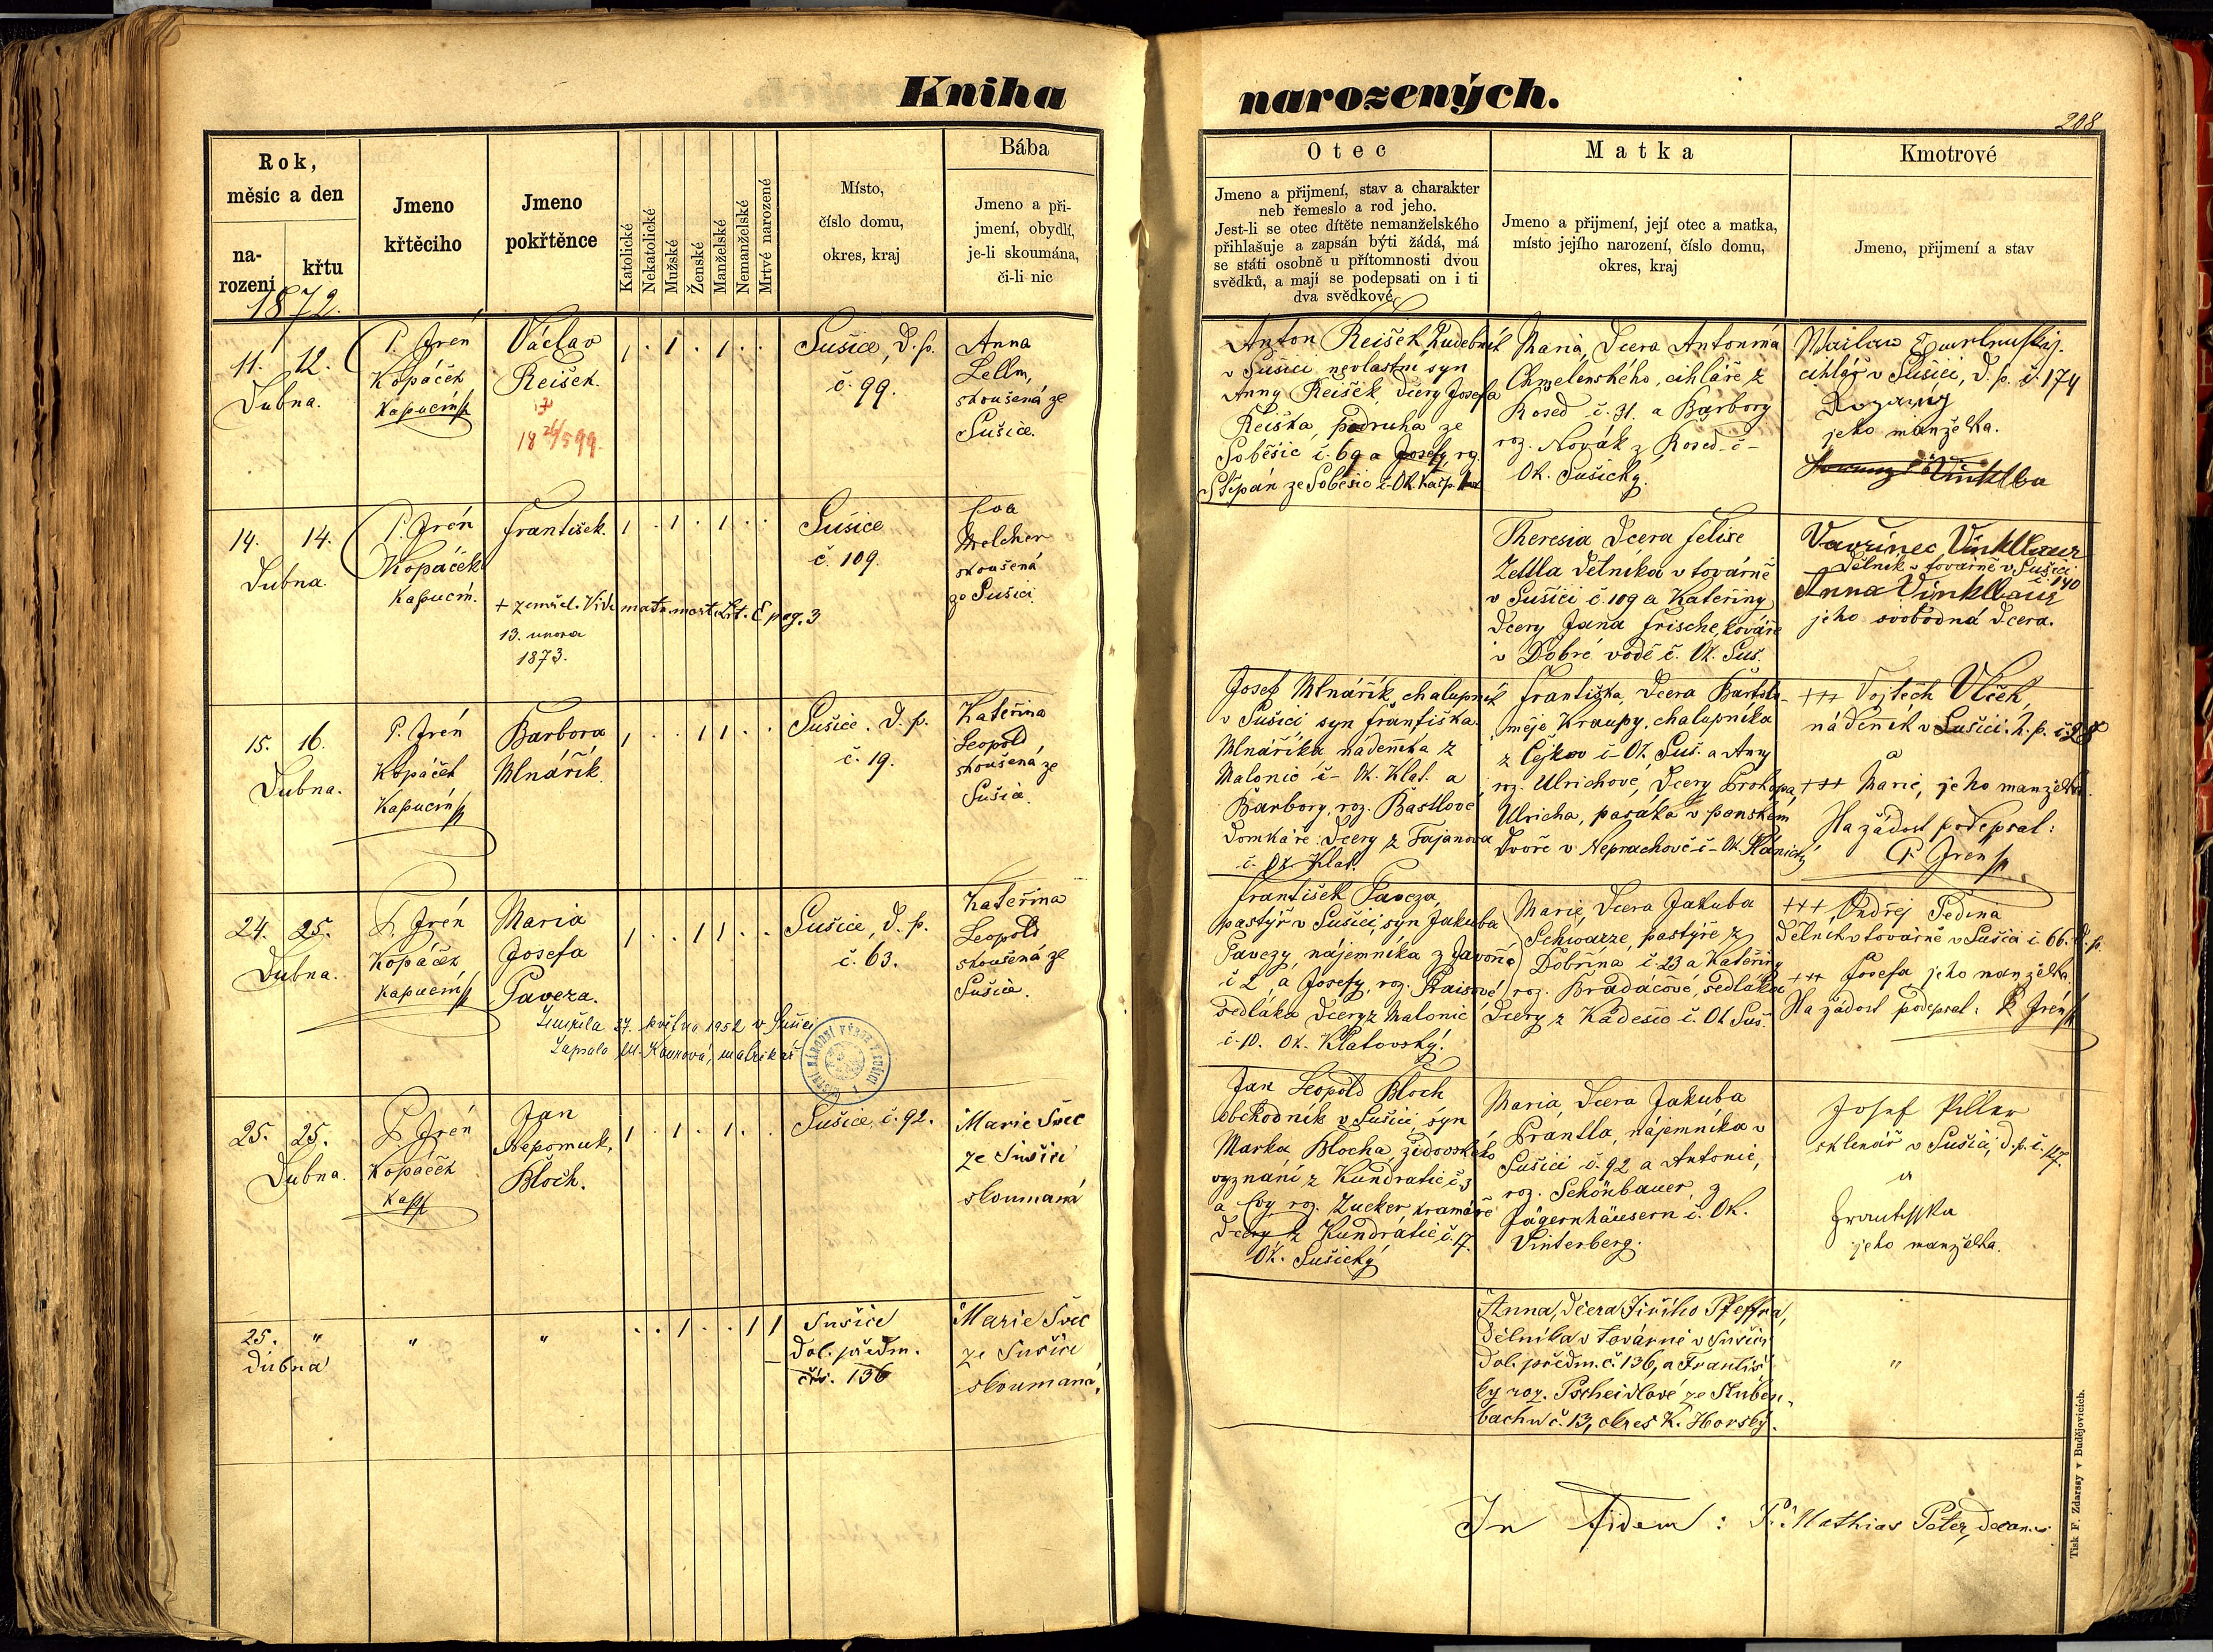 Kniha
narozených.
208
Rok,
měsíc a den
na-
rození
křtu
1872.
Jmeno
křtěcího
Jmeno
pokřtěnce
Katolické
Nekatolické
Mužské
Ženské
Manželské
Nemanželské
Mrtvé narozené
Místo,
číslo domu,
okres, kraj
Bába
Jmeno a při-
jmení, obydlí,
je-li skoumána,
či-li nic
Otec
Jmeno a přijmení, stav a charakter
neb řemeslo a rod jeho.
Jest-li se otec dítěte nemanželského
přihlašuje a zapsán býti žádá, má
se státi osobně u přítomnosti dvou
svědků, a mají se podepsati on i ti
dva svědkové
Matka
Jmeno a přijmení, její otec a matka,
místo jejího narození, číslo domu,
okres, kraj
Kmotrové
Jmeno, přijmení a stav
11. 12.
Dubna.
P. Irén
Kopáček
Kapucín
Václav
Reišek.
Sušice, D. p.
č. 99.
Anna
Lellm,
skoušená ze
Sušice.
Anton Reišek, hudebník
v Sušici, nevlastní syn
Anny Reišek, dcery Josefa
Reiška, podruha ze
Soběšic č. 69 a Josefy, roz.
Štěpán ze Soběšic č - Ok. Kašp.
Maria, Dcera Antonína
Chmelenského, cihláře z
Rosed č. 31. a Barbory
roz. Novák z Rosed - č -
Ok. Sušický.
cihlář v Sušici, D. p. č. 174
jeho manželka.
14. 14.
Dubna.
P. Irén
Kopáček
Kapucín.
František.
+ zemřel. Vide matr. mort. Lit. E pag. 3
13. unora
1873.
Sušice
č. 109.
Eva
Melcher
skoušená
ze Sušici
Theresia Dcera Felixe
Zettla dělníka v továrně
v Sušici č. 109 a Kateřiny
Dcery Jana Frische, kováře
v Dobré vodě č. Ok. Suš.
Vavřinec Vinklbaur
Dělník v továrně v Sušici
č. 140
Anna Vinklbaur
jeho svobodná Dcera.
15. 16.
Dubna.
P. Irén
Kopáček
Kapucín
Barbora
Mlnářík.
Sušice, D. p.
č. 19.
Kateřina
Leopold
skoušená ze
Sušice.
Josef Mlnářík, chalupník
v Sušici syn Františka
Mlnáříka nádeníka z
Malonic č - Ok. Klat. a
Barbory, roz. Bastlové
Domkáře Dcery z Fajanova
č. Ok Klat.
Františka, Dcera Barto-
měje Kraupy, chalupníka
z Čejkov č - Ok. Suš. a Anny
roz. Ulrichové, Dcery Prokopa,
Ulricha, pasáka v panském
Dvoře v Neprachově č - Ok. Plánický
+++ Vojtěch Vlček,
nádeník v Sušici. h. p. č. 28
a
+++ Marie, jeho manželka.
Na žádost podepsal:
P. Irén
24. 25.
Dubna.
P. Irén
Kopáček
Kapucín
Maria
Josefa
Paveza.
Zemřela 27. května 1952 v Sušici
Zapsala M. Kounová, matrikář
Sušice, D. p.
č. 63.
Kateřina
Leopold
skoušená ze
Sušice.
František Paveza,
pastýř v Sušici, syn Jakuba
Pavezy, nájemníka z Javoří
č 2, a Josefy, roz. Praisové
sedláka Dcery z Malonic
č. 10. Ok. Klatovský.
Marie, Dcera Jakuba
Schwarze, pastýře z
Dobřína č. 23 a Kateřiny
roz. Bradáčové, sedláka
Dcery z Kadešic č. Ok Suš.
+++ Ondřej Pedina
Dělník v továrně v Sušici č. 66. D. p.
+++ Josefa, jeho manželka.
Na žádost podepsal: P. Irén
25. 25.
Dubna.
P. Irén
Kopáček
Kap
Jan
Nepomuk.
Bloch.
Sušice, č. 92.
Marie Švec
ze Sušice
skoumaná
Jan Leopold Bloch
obchodník v Sušici, syn
Marka Blocha, židovského
vyznání z Kundratic č. 3
a Evy roz. Zucker, kramáře
Dcery z Kundratic č. 17.
Ok. Sušický
Maria, Dcera Jakuba
Prantla, nájemníka v
Sušici č. 92 a Antonie,
roz. Schönbauer, z
Jägernhäusern č. Ok.
Vinterberg.
Josef Piller
sklenář v Sušici, D. p. č. 127.
a
Františka
jeho manželka.
25. "
dubna
"
"
Sušice
Dol. předm.
čís. 136
Marie Švec
ze Sušice
skoumaná,
Anna, dcera Jiřího Pfeffra,
dělníka v továrně v Sušici,
dol. předm. č. 136, a Františ-
ky roz. Pscheidlové ze Stuben-
bachu č. 13, okres K. Horský.
"
In fidem: P. Mathias Peter, decanus
Tisk F. Zdarssy v Budějovicích.